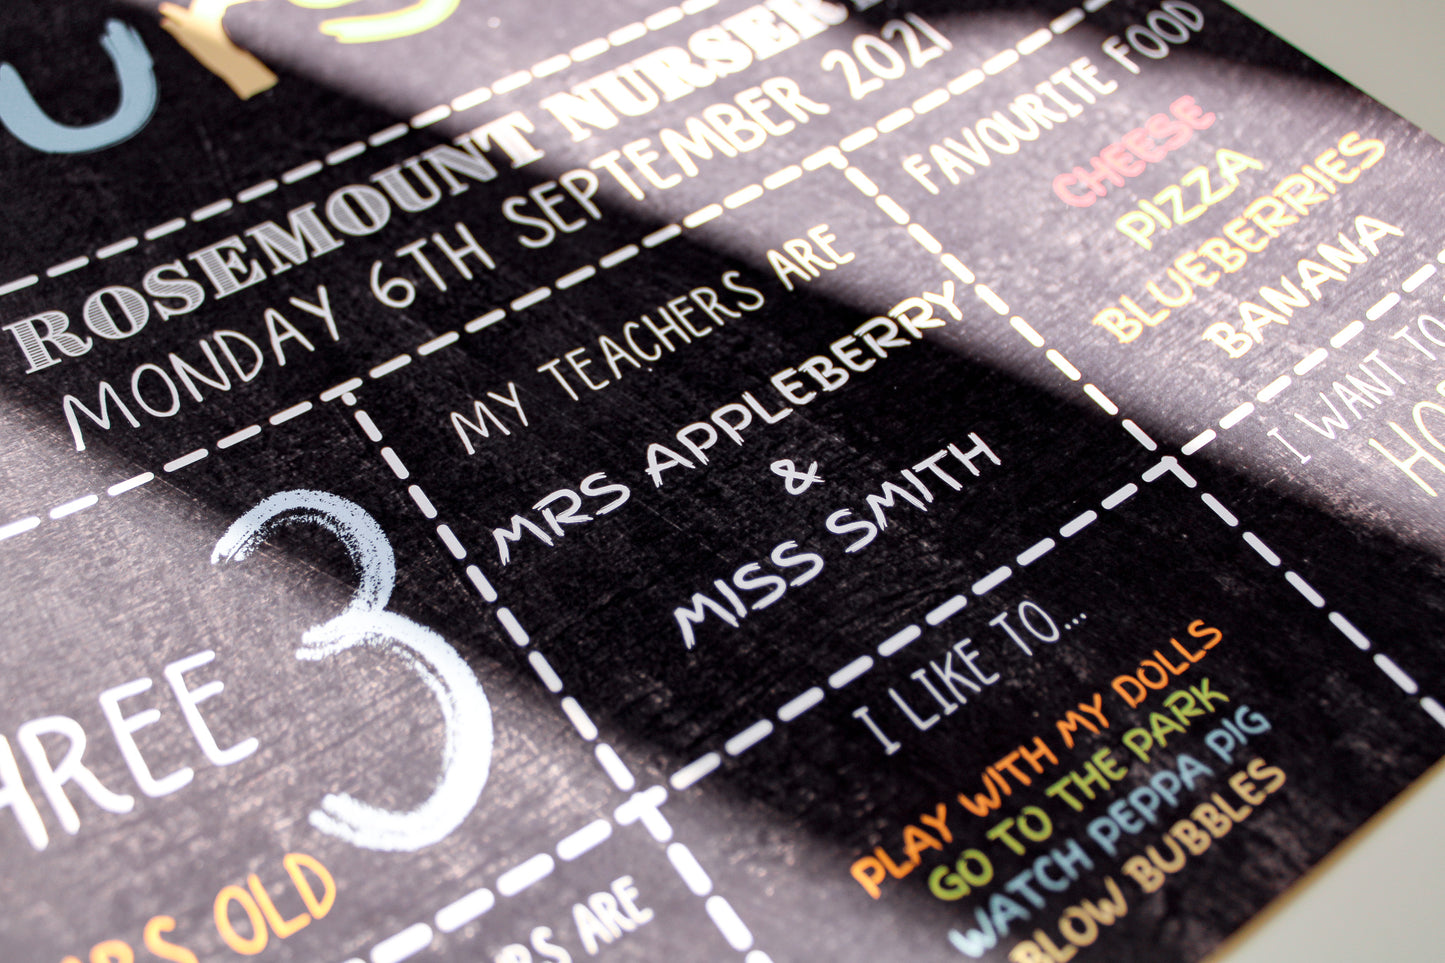 ROSEMOUNT NURSERY
MONDAY 6TH SEPTEMBER 2021
3
OLD
MY TEACHERS ARE
MRS APPLEBERRY
&
MISS SMITH
FAVOURITE FOOD
CHEESE
PIZZA
BLUEBERRIES
BANANA
I WANT TO
I LIKE TO...
PLAY WITH MY DOLLS
GO TO THE PARK
WATCH PEPPA PIG
BLOW BUBBLES
ARE